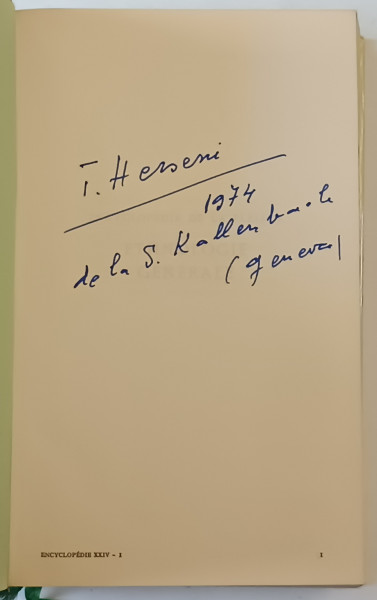 T. Herseni
1974
de la S. Kallenbach
(Geneva)
ENCYCLOPÉDIE XXIV - 1
1